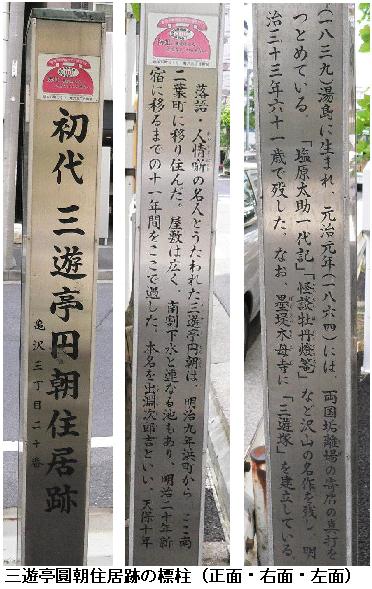 初代 三遊亭円朝住居跡
亀沢三丁目二十番
落語・人情噺の名人とうたわれた三遊亭円朝は、明治九年浜町からここ南
二葉町に移り住んだ。屋敷は広く、南割下水と連なる池もあり、明治二十年新
宿に移るまでの十一年間をここで過した。本名を出淵次郎吉といい、天保十年
(一八三九)湯島に生まれ、元治元年(一八六四)には 両国垢離場の寄席の真打を
つとめている。「塩原太助一代記」「怪談牡丹燈籠」など沢山の名作を残し、明
治三十三年六十一歳で歿した。なお、墨堤木母寺に「三遊塚」を建立している。
三遊亭圓朝住居跡の標柱(正面・右面・左面)